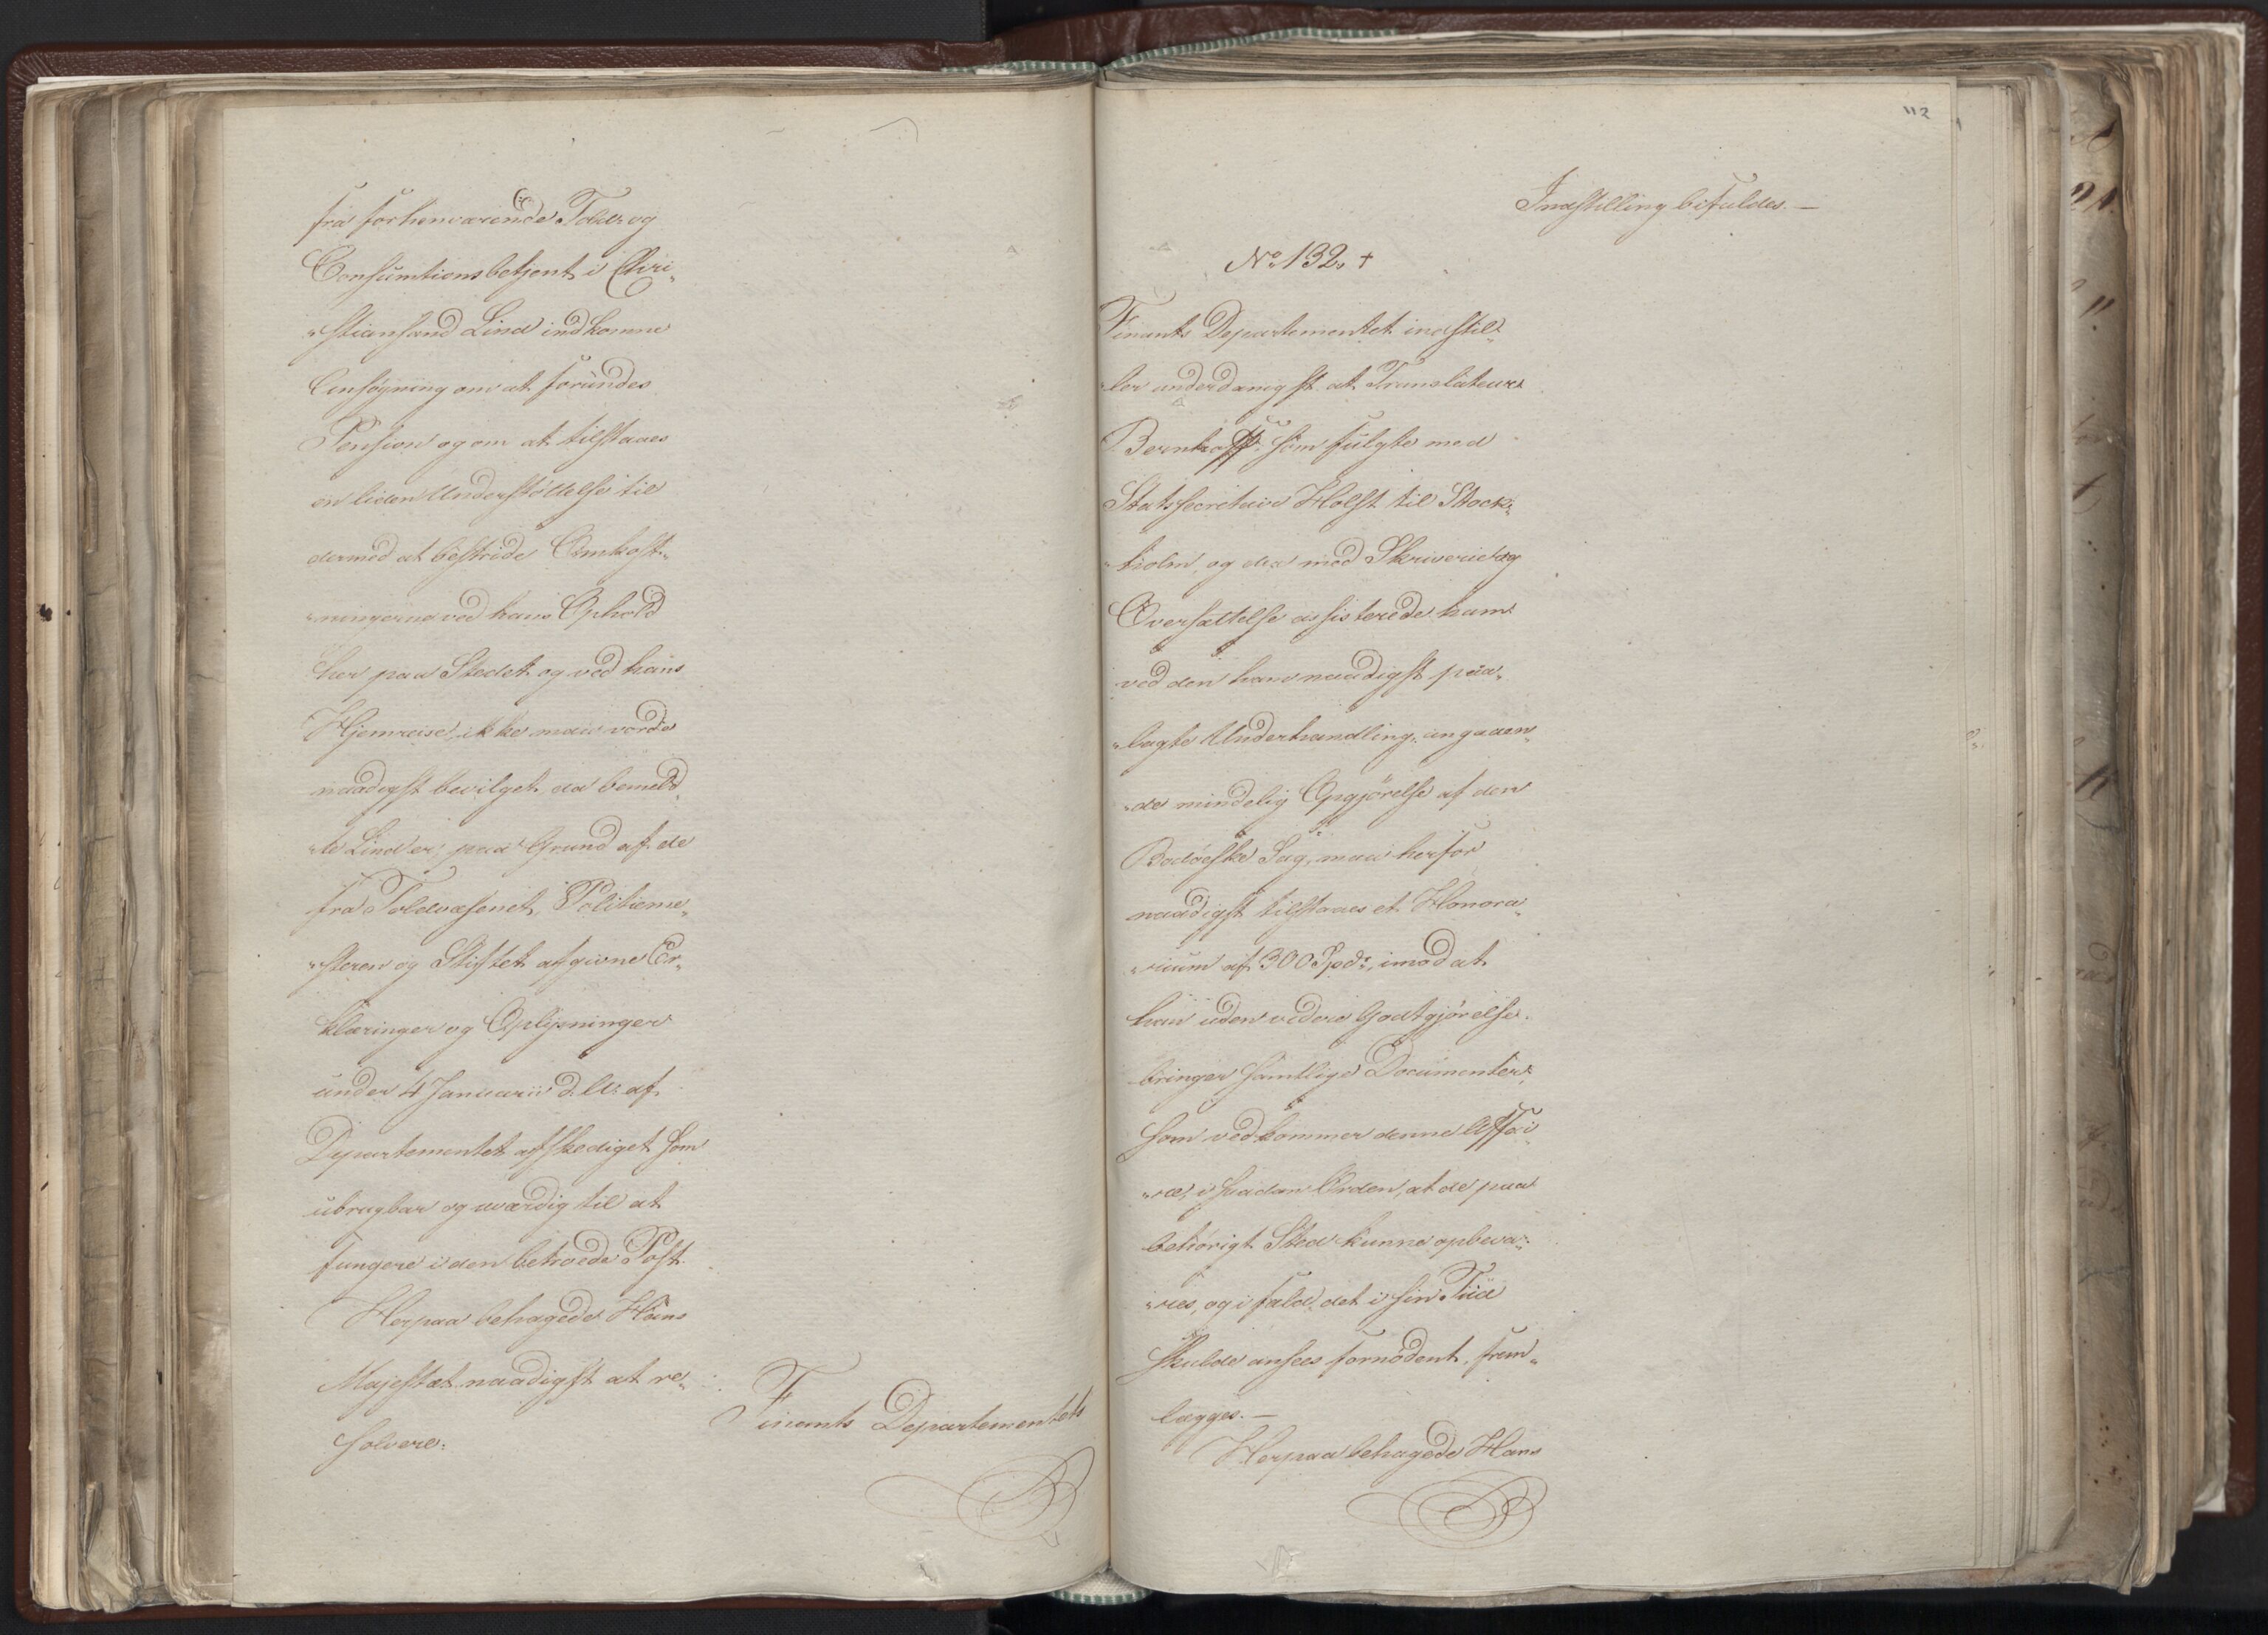 fra forhenværende Told- og
Consumtionsbetjent i Chri„
„stiansand Lind indkomne
Ansøgning om at forundes
Pension og om at tilstaaes
en liden Understøttelse til
dermed at bestride Omkost„
„ningerne ved hans Ophold
her paa Stedet og ved hans
Hjemreise, ikke maa vorde
naadigst bevilget, da bemeld„
„te Lind er, paa Grund af de
fra Toldvæsenet, Politieme„
„steren og Stiftet afgivne Er„
klæringer og Oplysninger
under 4 Januarii d. A. af
Departementet afskediget som
ubrugbar og uværdig til at
fungere i den behavede Post.
Herpaa behagede Hans
Majestæt naadigst at re„
solvere:
Finants Departementets
112
Indstilling bifaldes. —
No 132. +
Finants Departementet indstil„
ler underdanigst at Translateur
Bernhoff, som fulgte med
Statssecretaire Holst til Stock„
„holm, og der med Skriverie og
Oversættelse assisterede ham
ved den ham naadigst paa„
„lagte Underhandling, angaaen„
„de mindelig Opgjørelse af den
Bodøeske Sag, maa herfor
naadigst tilstaaes et Honora„
„rium af 300 Spdr, imod at
han uden videre Godtgjørelse
bringer samtlige Documenter,
som vedkommer denne Affai„
„re, i saadan Orden, at de paa
behørigt Sted kunne opbeva„
„res, og i fald det i sin Tiid
skulde ansees fornødent, frem„
lægges. —
Herpaa behagede Hans